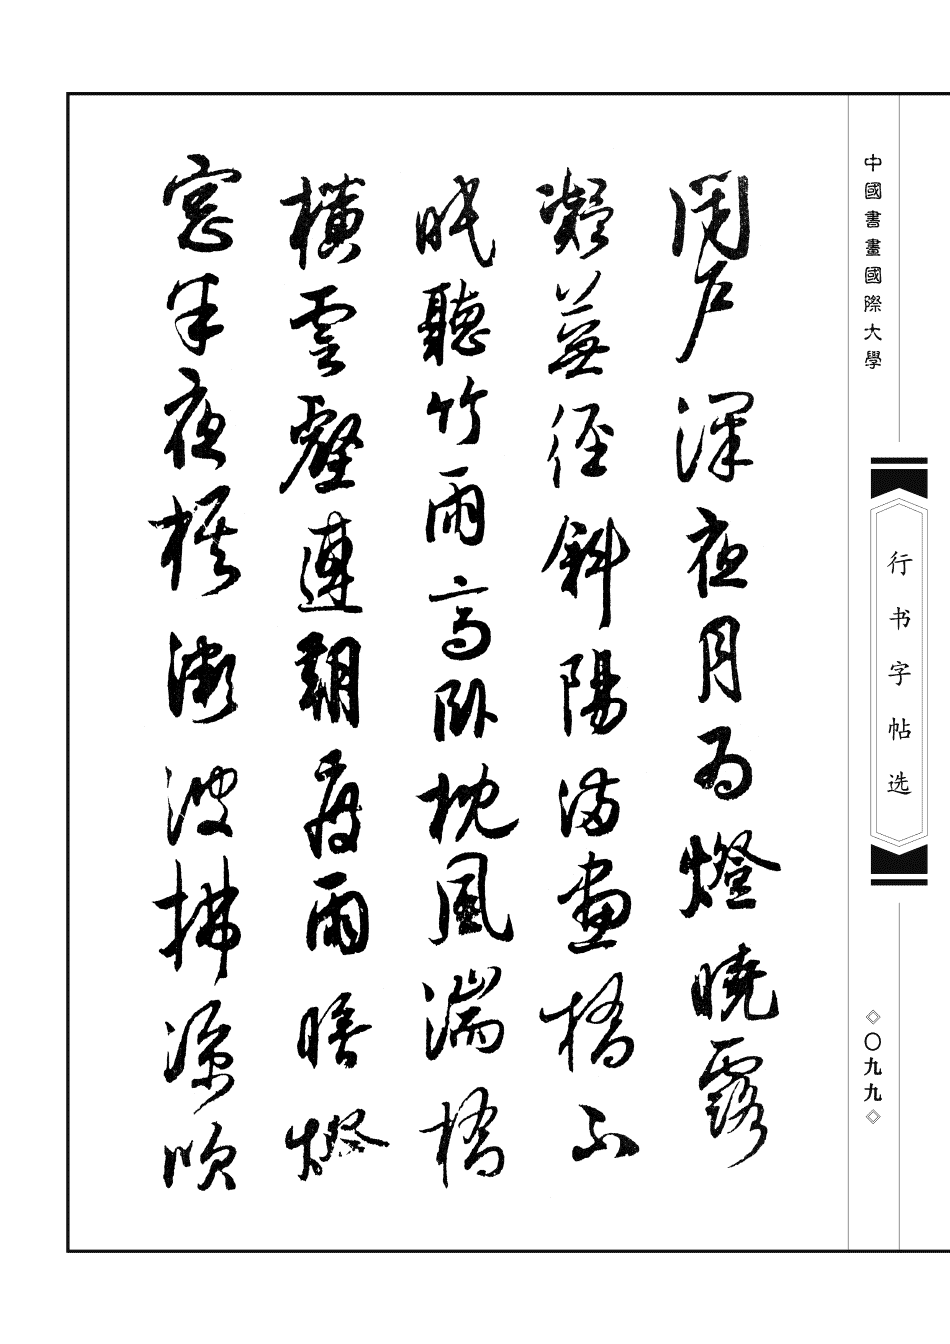 中國書畫國際大學
行书字帖选
◇〇九九◇
戶深夜月為燈曉露
凝蕪徑斜陽滿畫橋不
眠聽竹雨高臥枕風湍橋
橫雲壑連朝雨暗燈
窗半夜棋漸波拂涼吹